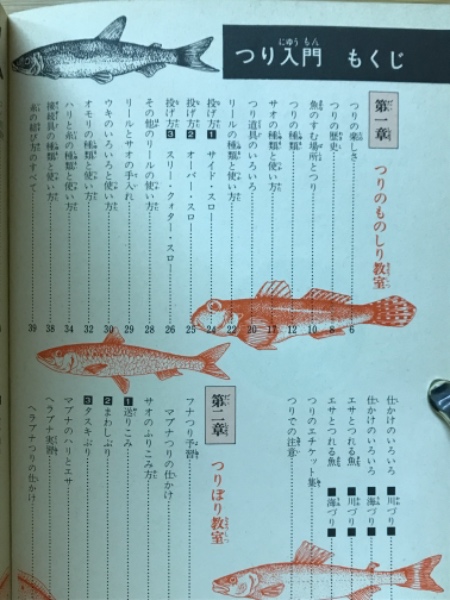 つり入門 もくじ
にゅうもん
第一章 つりのものしり教室
つりの楽しさ 6
つりの歴史 8
魚のすむ場所とつり 10
つりの種類 12
サオの種類と使い方 17
つり道具のいろいろ 20
リールの種類と使い方 22
投げ方 1 サイド・スロー 24
投げ方 2 オーバー・スロー 25
投げ方 3 スリー・クォター・スロー 26
その他のリールの使い方 28
リールとサオの手入れ 29
ウキのいろいろと使い方 30
オモリの種類と使い方 32
ハリと糸の種類と使い方 34
接続具の種類と使い方 38
糸の結び方のすべて 39
仕かけのいろいろ ■川づり■
仕かけのいろいろ ■海づり■
エサとつれる魚 ■川づり■
エサとつれる魚 ■海づり■
つりのエチケット集
つりでの注意
第二章 つりぼり教室
フナつり予習
マブナつりの仕かけ
サオのふりこみ方
1 送りこみ
2 まわしぶり
3 タスキぶり
マブナのハリとエサ
ヘラブナ実習
ヘラブナつりの仕かけ